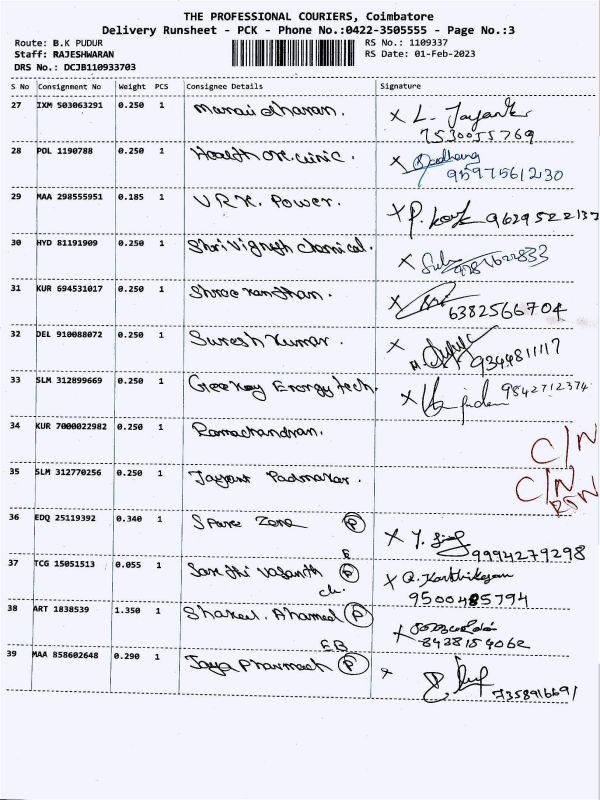 THE PROFESSIONAL COURIERS, Coimbatore
Delivery Runsheet - PCK - Phone No.:0422-3505555 - Page No.:3
Route: B.K PUDUR RS No.: 1109337
Staff: RAJESHWARAN RS Date: 01-Feb-2023
DRS No.: DCJB110933703
S No Consignment No Weight PCS Consignee Details Signature
27 IXM 503063291 0.250 1 X L.
7530055769
28 POL 1190788 0.250 1 Health clinic. X
9597561230
29 MAA 298555951 0.185 1 V R K. Power. X P. 9629522137
30 HYD 81191909 0.250 1 Shri Vignesh Chemical. X
31 KUR 694531017 0.250 1 Shree X
6382566704
32 DEL 910088072 0.250 1 Suresh Kumar. X
9344811117
33 SLM 312899669 0.250 1 Geekay Energy tech. X 9842712374
34 KUR 7000022982 0.250 1 Ramachandran.
C/N
35 SLM 312770256 0.250 1 Jayant Padmakar.
C/N
36 EDQ 25119392 0.340 1 Spare Zone P X Y.
9994279298
37 TCG 15051513 0.055 1 Vasanth P X Karthikesan
9500485794
38 ART 1838539 1.350 1 Shakeel Ahamed P X
8438154062
EB
39 MAA 858602648 0.290 1 Jaya Pharmach P X
7358916691